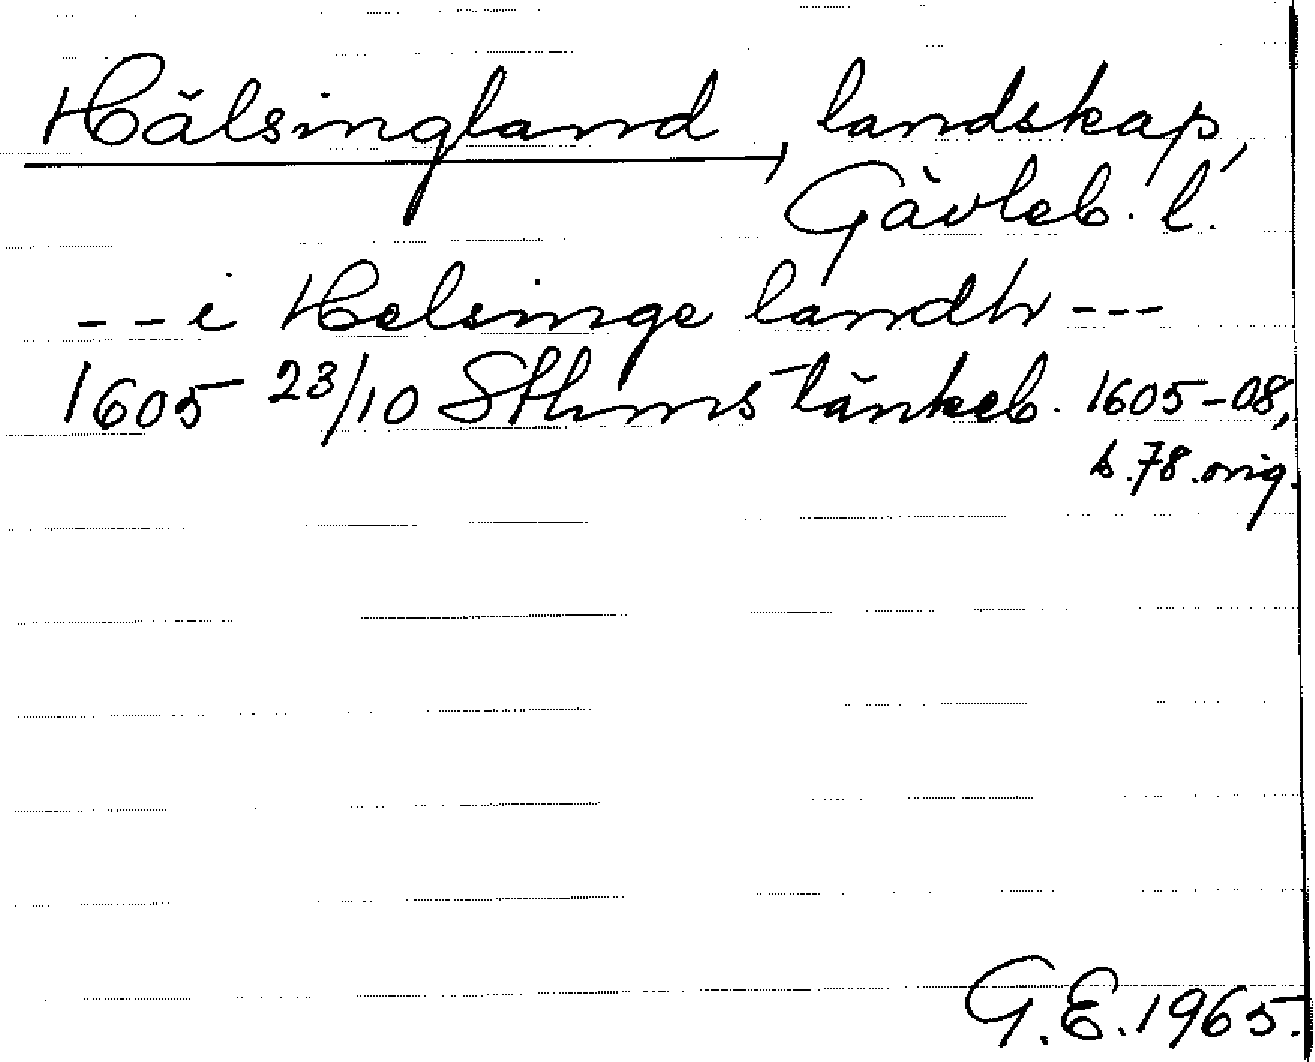 Hälsingland, landskap,
Gävleb. l.
--i Helsinge landh ---
1605 23/10 Sthms tänkeb. 1605-08,
s.78.orig.
G.E.1965.